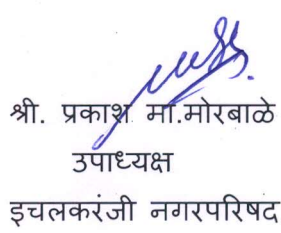 श्री. प्रकाश मा.मोरबाळे
उपाध्यक्ष
इचलकरंजी नगरपरिषद